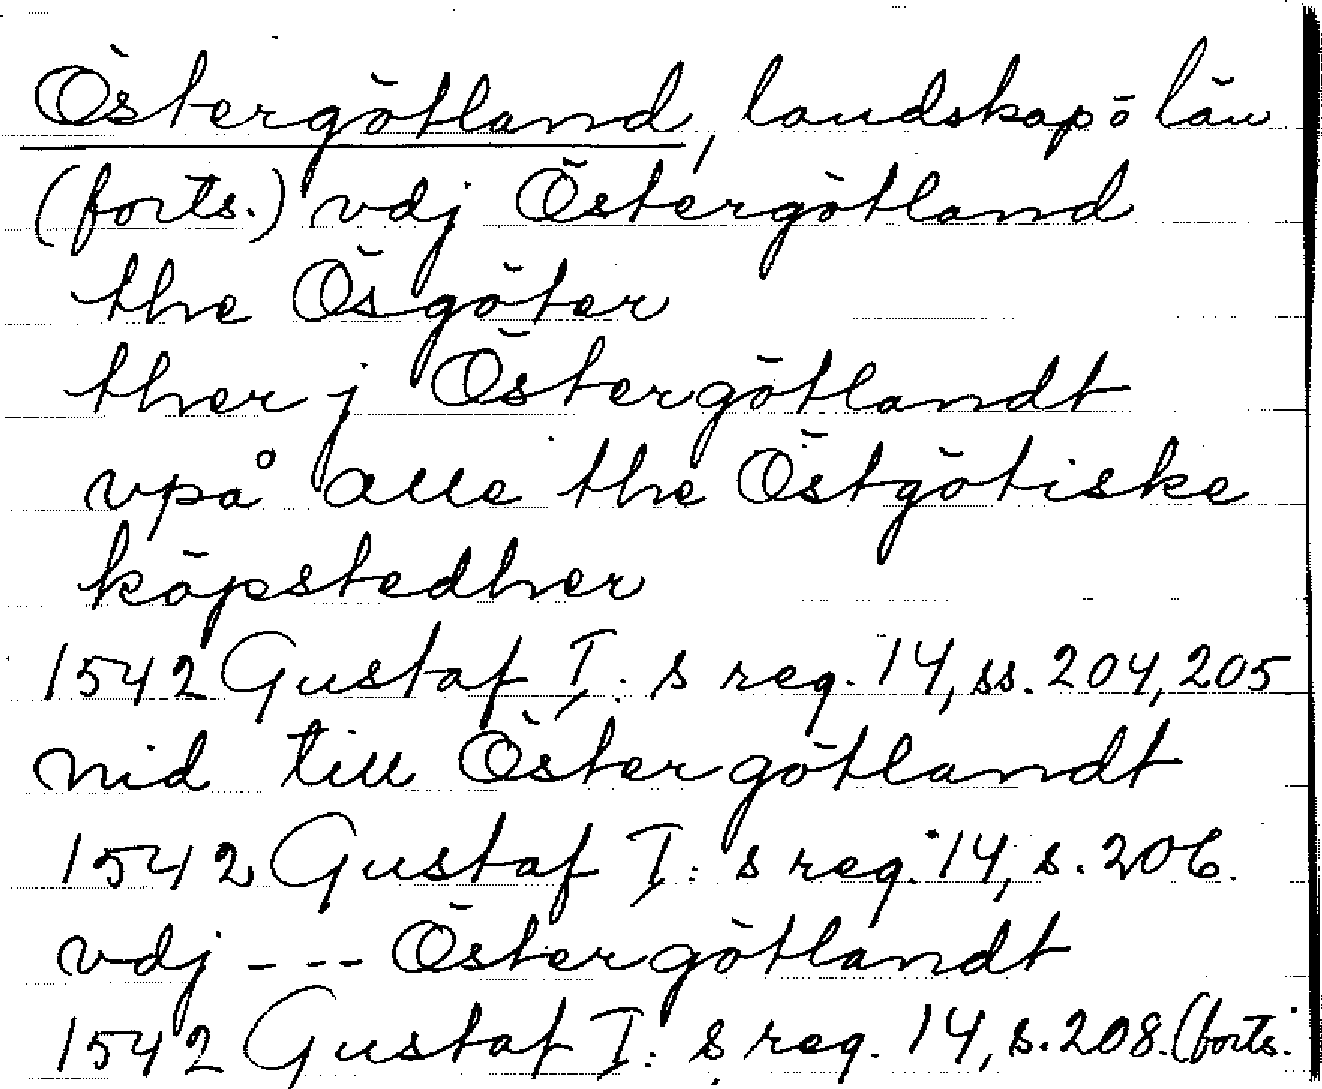 Östergötland, landskap o län
(forts.) vdj Östergötland
the Ösgöter
ther j Östergötlandt
vpå alle the Östgötiske
köpstedher
1542 Gustaf I: s reg. 14, ss. 204, 205
nid till Östergötlandt
1542 Gustaf I: s reg. 14, s. 206.
vdj --- Östergötlandt
1542 Gustaf I: s reg. 14, s. 208. (forts.